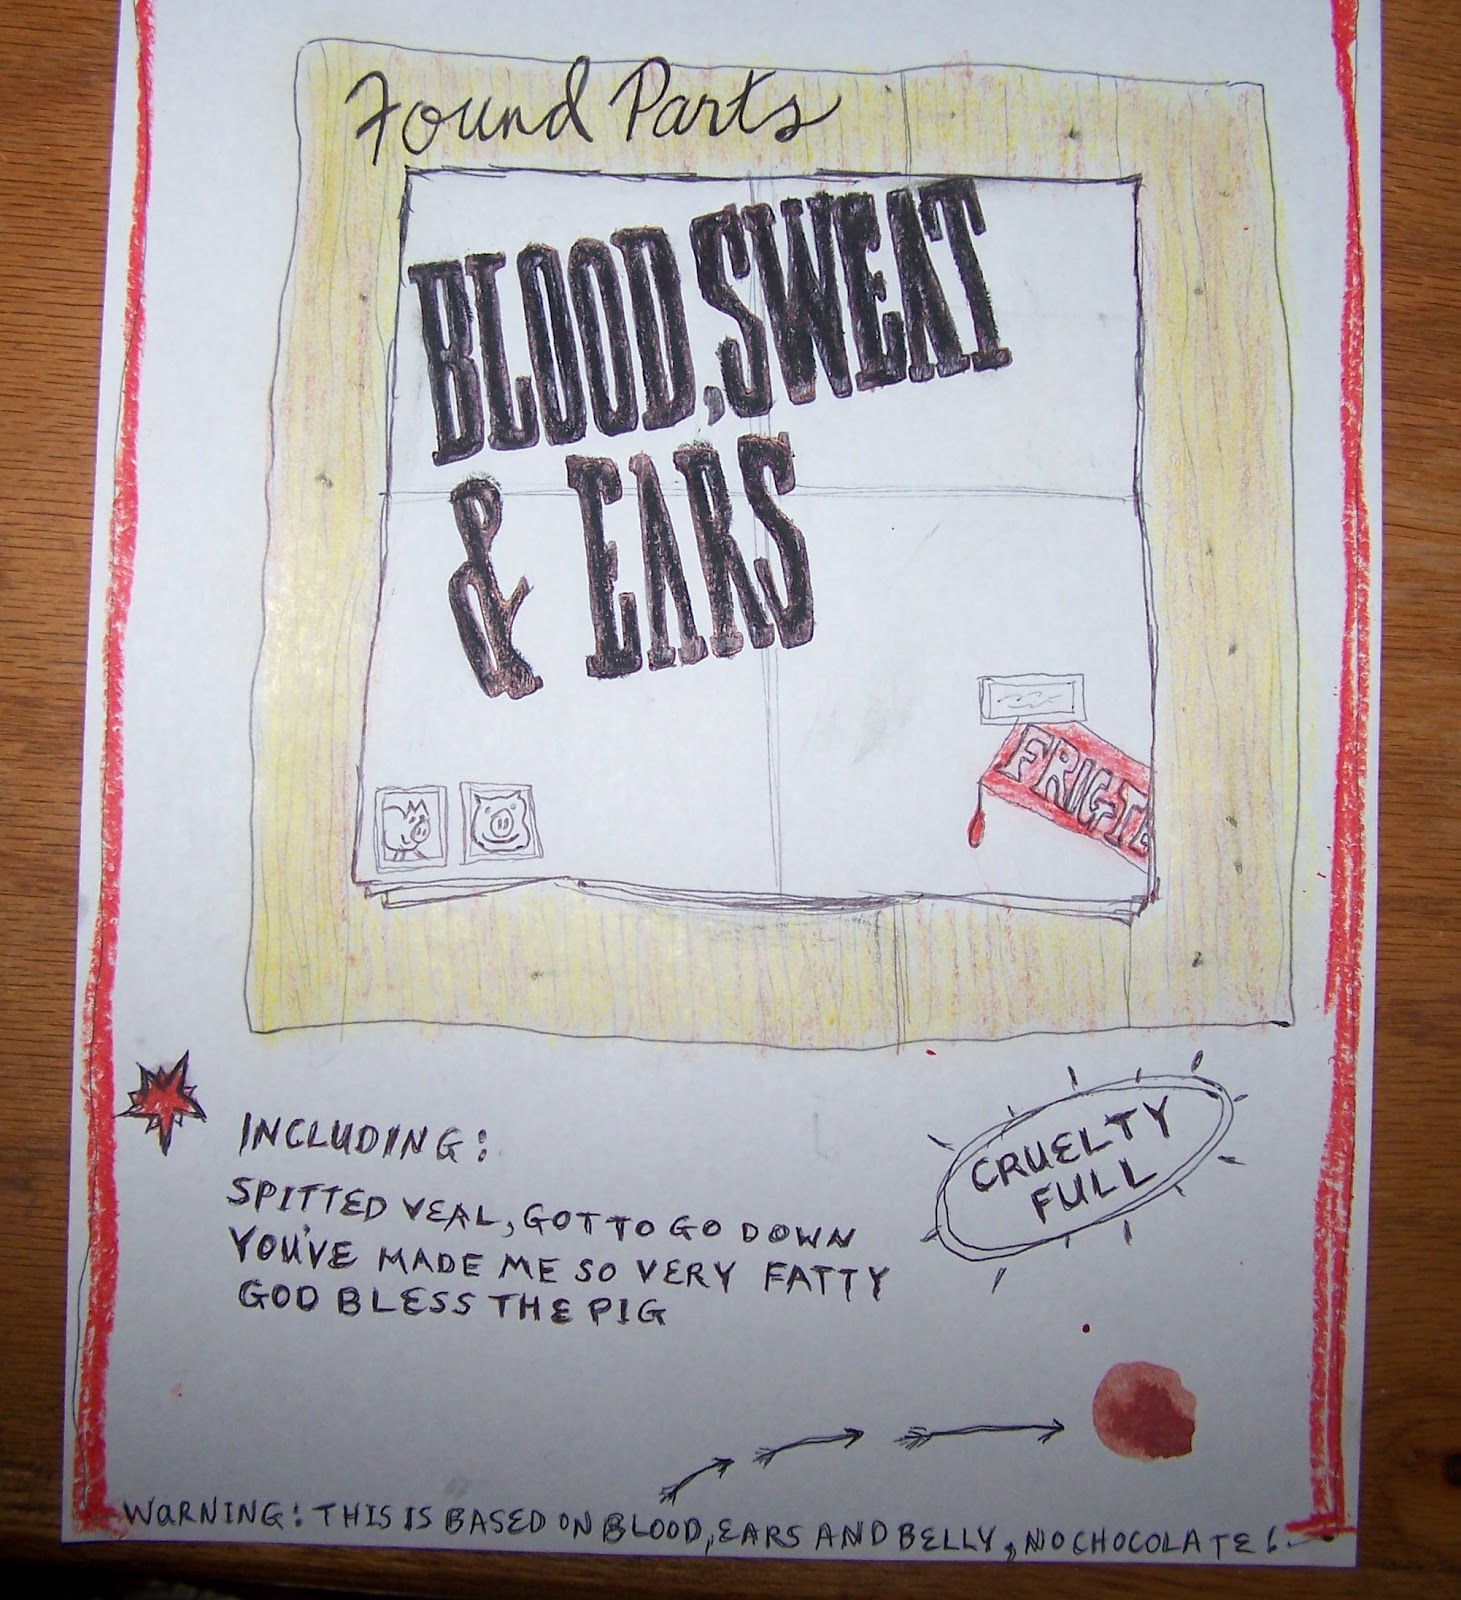 Found Parts
BLOOD, SWEAT
& EARS
FRIG-TE
INCLUDING:
SPITTED VEAL, GOT TO GO DOWN
YOU'VE MADE ME SO VERY FATTY
GOD BLESS THE PIG
CRUELTY
FULL
WARNING: THIS IS BASED ON BLOOD, EARS AND BELLY, NO CHOCOLATE!